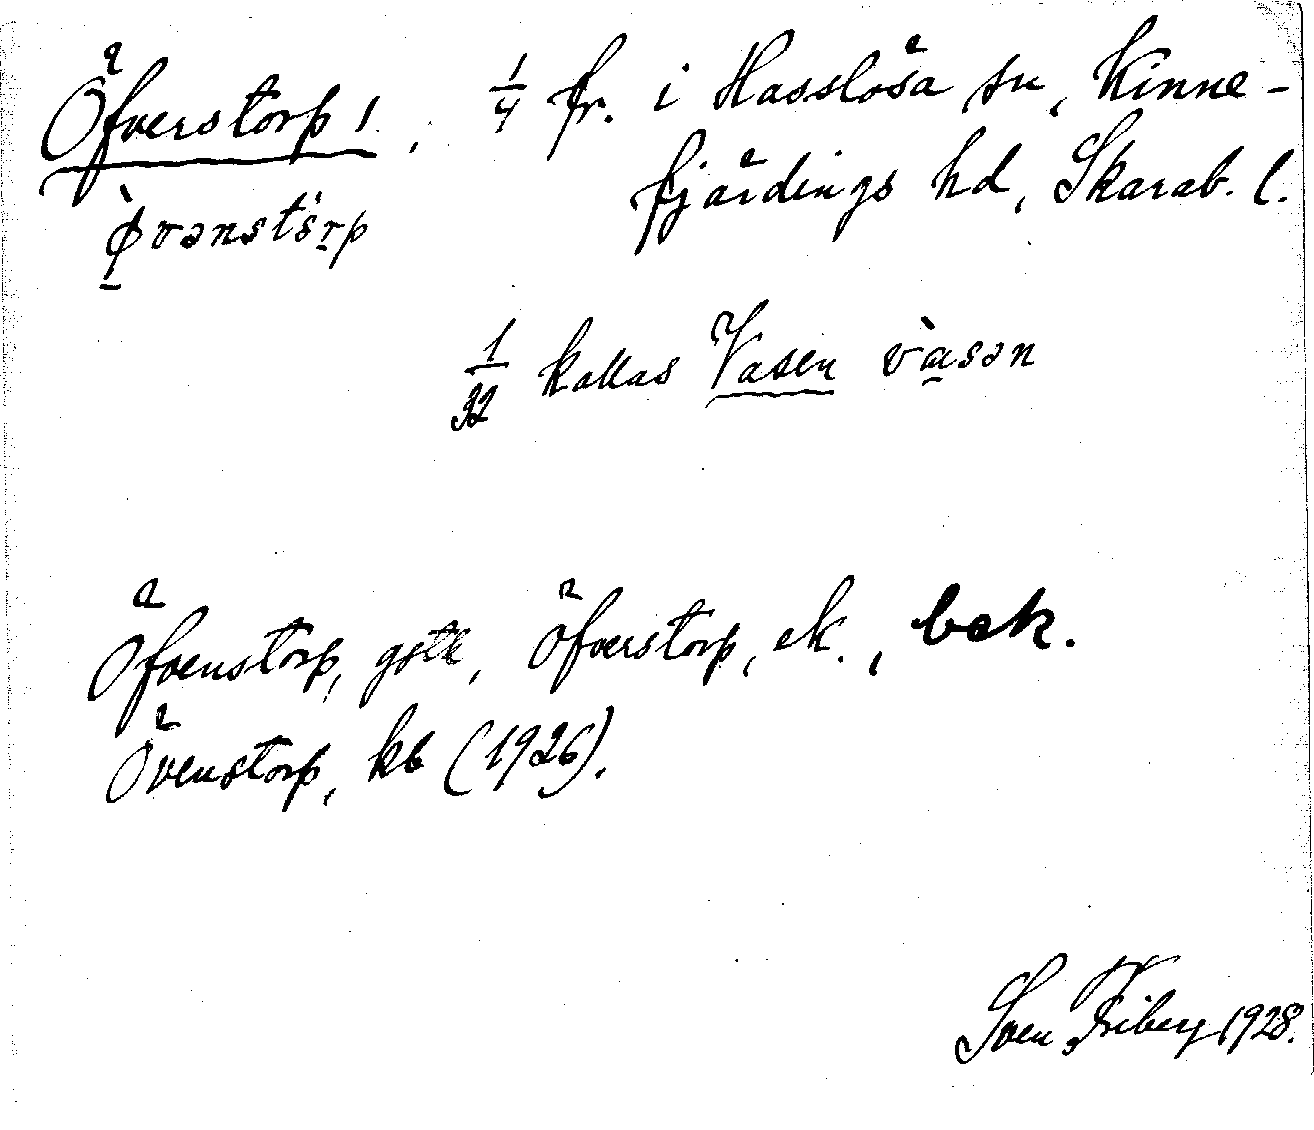 Öfverstorp 1, 1/4 fr. i Hasslösa sn, Kinne-
fjärdings hd, Skarab. l.
ø̀vənstórp
1/32 kallas Vasen vàsən
Öfvenstorp, gstk, Öfverstorp, ek., bek.
Övenstorp, kb (1926).
Sven Friberg 1928.